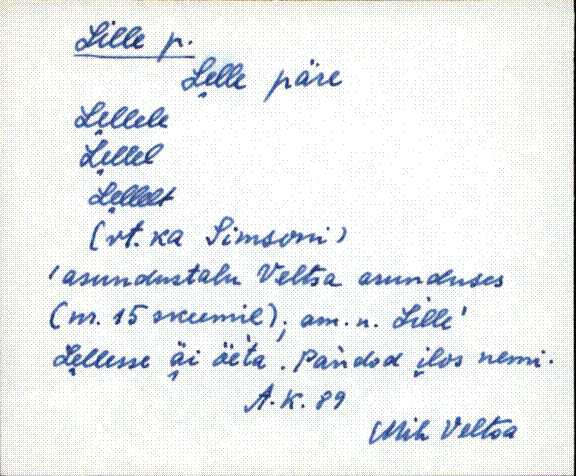 Lille p.
Lẹlle päre
Lẹllele
Lẹllel
Lẹllelt
(vt. ka Simsoni)
'asundustalu Veltsa asunduses
(nr. 15 skeemil); am. n. Lille'
Lẹllesse ä̭i öèta. Pàndod ilos nemi.
A. K. 89
Mih Veltsa